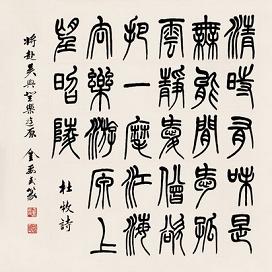 清時有味是
無能閒愛孤
雲靜愛僧欲
把一麾江海
去樂游原上
望昭陵
杜牧詩
將赴吳興登樂遊原